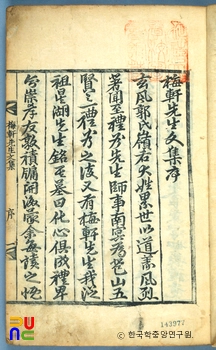 梅軒先生文集序
玄風郭氏嶺右大姓累世以道義風烈
著聞至禮谷先生師事南冥爲山五
賢之一禮谷之後又有梅軒先生我從
祖星湖先生銘其墓曰化心俱成禮卑
崇孝友敦積牖開蒙余每之
梅軒先生文集 序
143977
ⓒ 한국학중앙연구원.